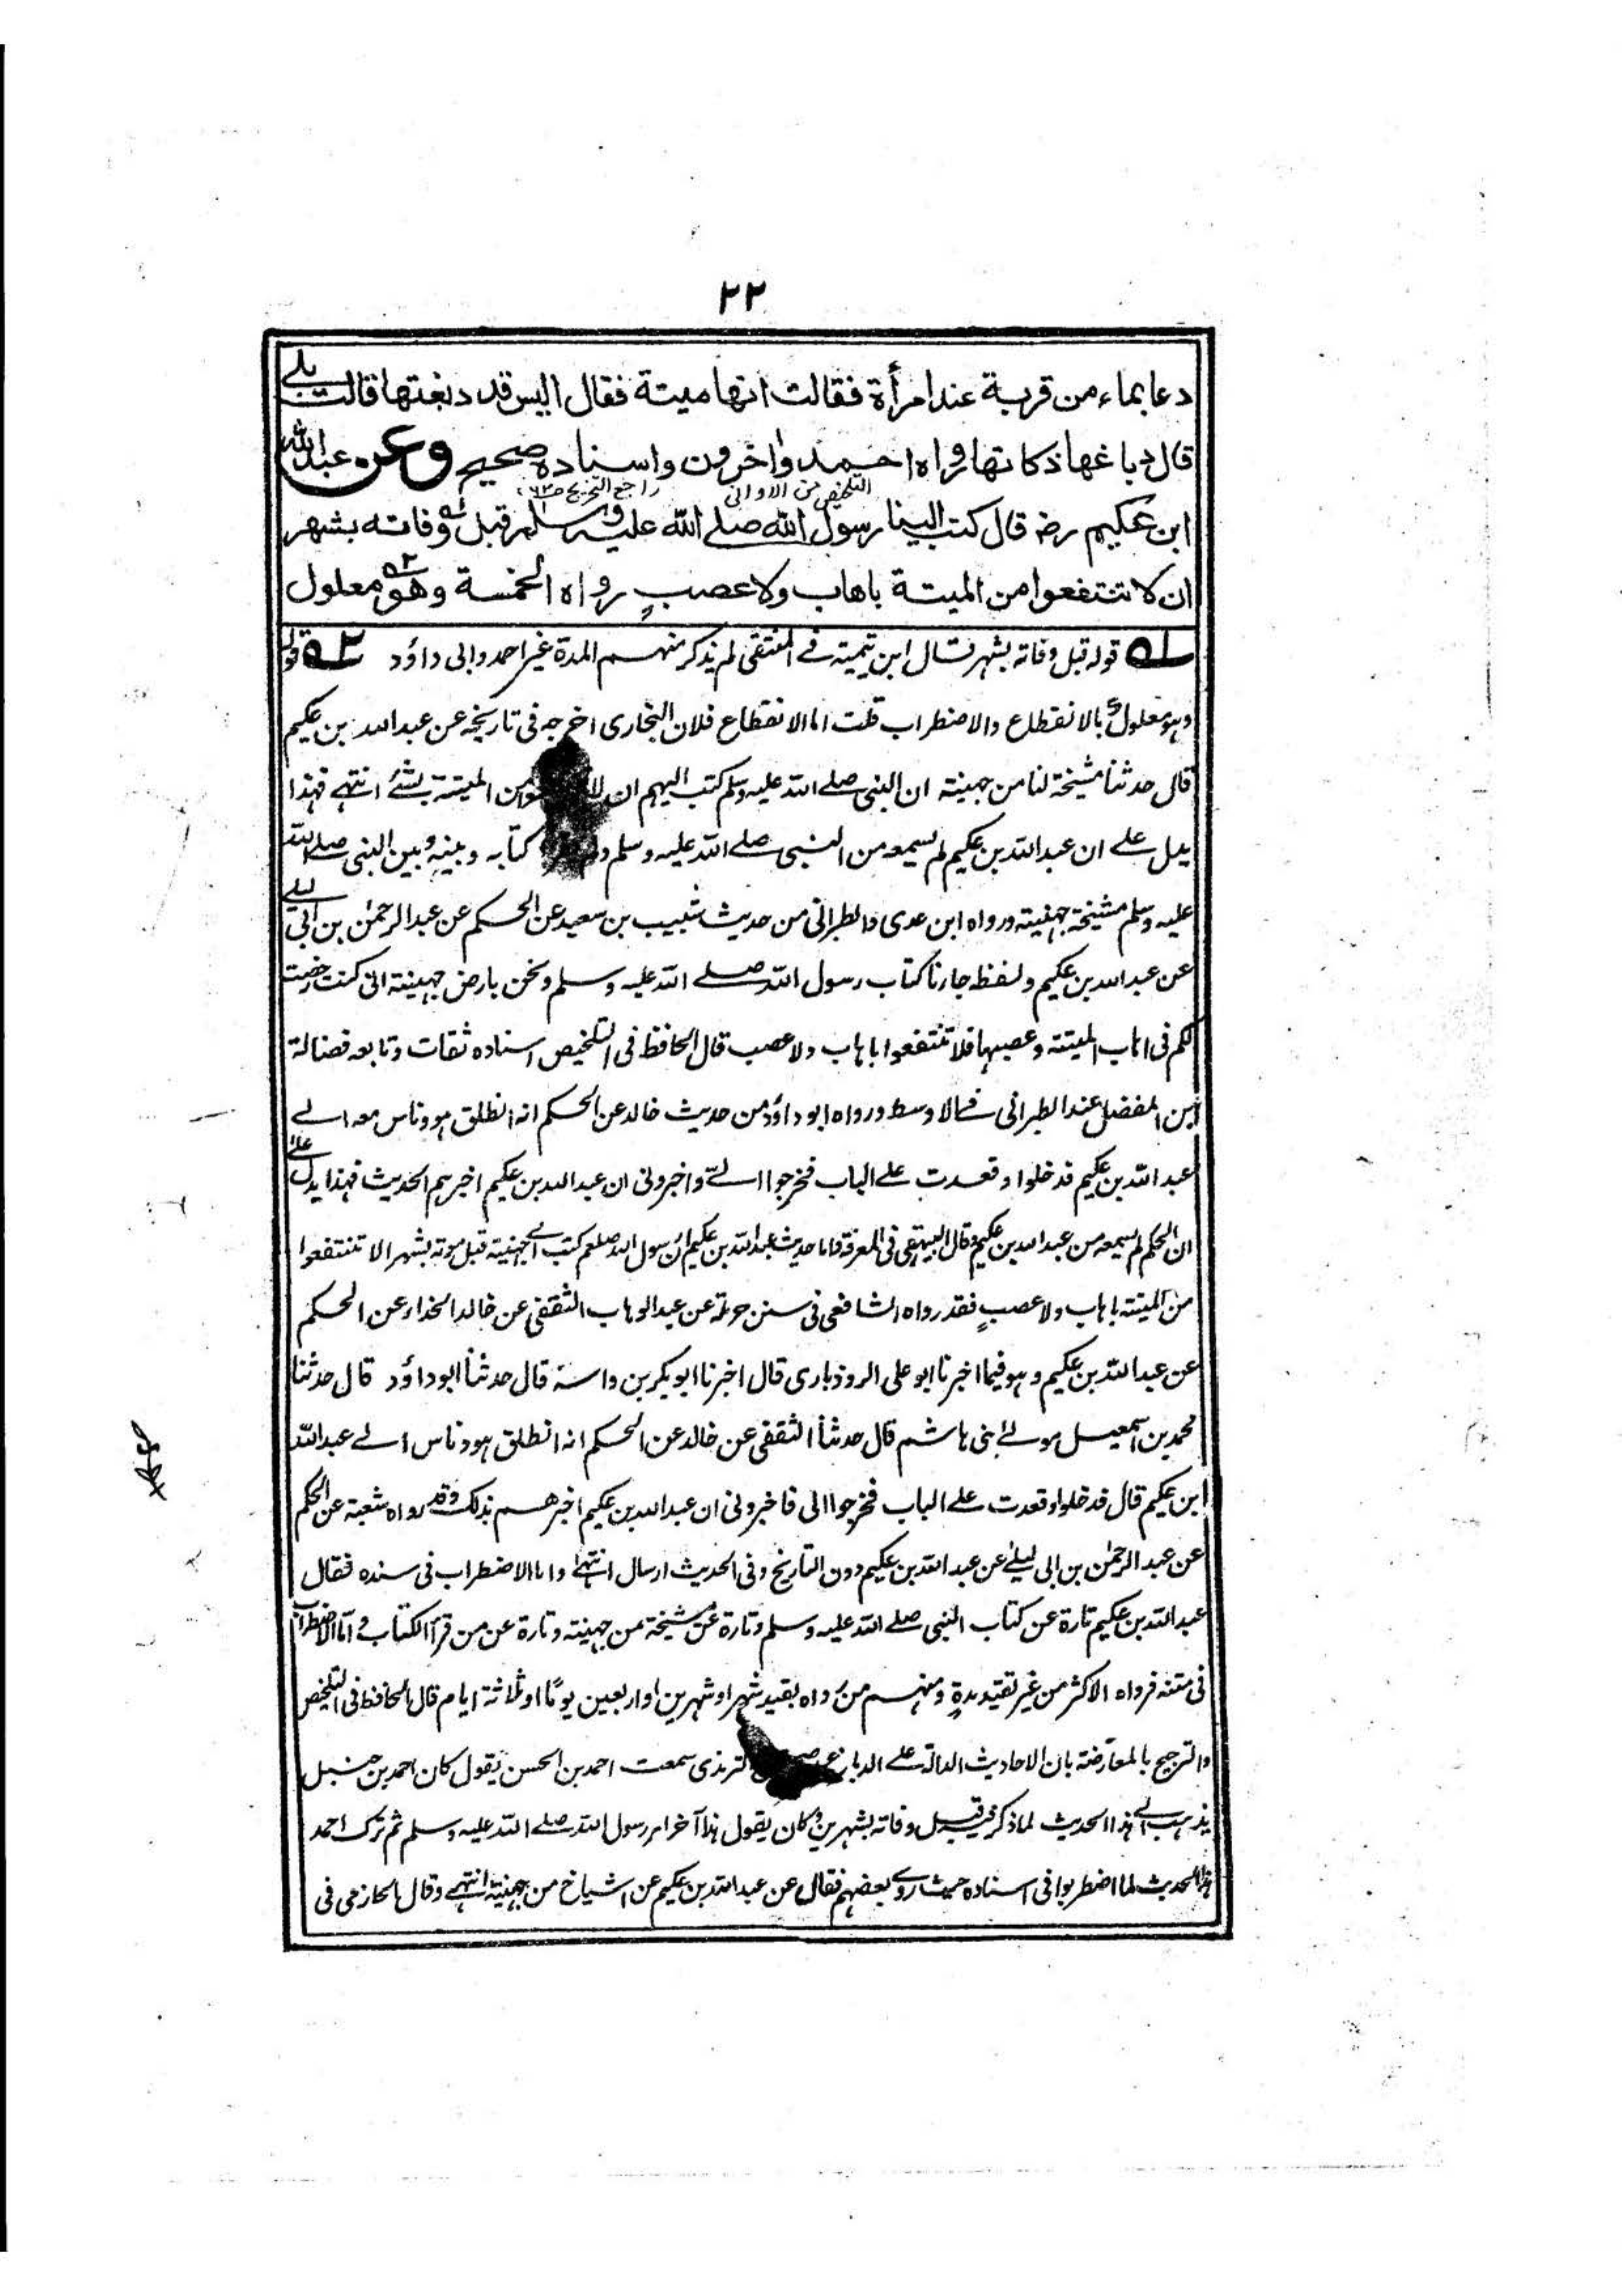 ٢٢
دعا بماء من قربة عند امرأة فقالت انها ميتة فقال اليس قد دبغتها قالت بلے
قال دباغها ذكاتها رواه احمد واخرون واسناده صحيح وعن عبد الله
ابن عكيم رضـ قال كتب الينا رسول الله صلے الله عليه وسلم قبل وفاته بشهر
ان لا تنتفعوا من الميتة باهاب ولا عصبٍ رواه الخمسة وهو معلول
ؔ١ قوله قبل وفاته بشهر قال ابن تيمية فے المنتقى لم يذكر منهم المدة غير احمد وابى داؤد ؔ٢ قوله
وهو معلول بالانقطاع والاضطراب قلت اما الانقطاع فلان البخارى اخرجه فى تاريخه عن عبد الله بن عكيم
قال حدثنا مشيخة لنا من جهينة ان النبى صلے الله عليه وسلم كتب اليهم ان من الميتة بشئ انتهے فهذا
يدل علے ان عبد الله بن عكيم لم يسمعه من النبى صلے الله عليه وسلم كتابه وبينه وبين النبى صلے الله
عليه وسلم مشيخة جهينة ورواه ابن عدى والطبرانى من حديث شبيب بن سعيد عن الحكم عن عبد الرحمٰن بن ابى ليلے
عن عبد الله بن عكيم ولفظه جاءنا كتاب رسول الله صلے الله عليه وسلم ونحن بارض جهينة انى كنت رخصت
لكم فى اهاب الميتة وعصبها فلا تنتفعوا باهاب ولا عصب قال الحافظ فى التلخيص اسناده ثقات وتابعه فضالة
ابن المفضل عند الطبرانى فے الاوسط ورواه ابو داؤد من حديث خالد عن الحكم انه انطلق هو وناس معه الے
عبد الله بن عكيم فدخلوا وقعدت علے الباب فخرجوا الےّ واخبرونى ان عبد الله بن عكيم اخبرهم الحديث فهذا يدل علے
ان الحكم لم يسمعه من عبد الله بن عكيم وقال البيهقى فى المعرفة واما حديث عبد الله بن عكيم ان رسول الله صلعم كتب الے جهينة قبل موته بشهر الا تنتفعوا
من الميتة باهاب ولا عصبٍ فقد رواه الشافعى فى سنن حرملة عن عبد الوهاب الثقفى عن خالد الحذاء عن الحكم
عن عبد الله بن عكيم وهو فيما اخبرنا ابو على الروذبارى قال اخبرنا ابو بكر بن داسة قال حدثنا ابو داؤد قال حدثنا
محمد بن اسمعيل مولے بنى هاشم قال حدثنا الثقفى عن خالد عن الحكم انه انطلق هو وناس الے عبد الله
ابن عكيم قال فدخلوا وقعدت علے الباب فخرجوا الى فاخبرونى ان عبد الله بن عكيم اخبرهم بذلك وقد رواه شعبة عن الحكم
عن عبد الرحمٰن بن ابى ليلےٰ عن عبد الله بن عكيم دون التاريخ وفى الحديث ارسال انتهےٰ واما الاضطراب فى سنده فقال
عبد الله بن عكيم تارة عن كتاب النبى صلے الله عليه وسلم وتارة عن مشيخة من جهينة وتارة عن من قرأ الكتاب واما الاضطراب
فى متنه فرواه الاكثر من غير تقييد مدةٍ ومنهم من رواه بقيد شهر او شهرين او اربعين يومًا او ثلاثة ايام قال الحافظ فى التلخيص
والترجيح بالمعارضة بان الاحاديث الدالة علے الدباغ الترمذى سمعت احمد بن الحسن يقول كان احمد بن حنبل
يذهب الے هذا الحديث لما ذكر فيه قبل وفاته بشهرين وكان يقول هذا آخر امر رسول الله صلے الله عليه وسلم ثم ترك احمد
هذا الحديث لما اضطربوا فى اسناده حيث روے بعضهم فقال عن عبد الله بن عكيم عن اشياخ من جهينة انتهے وقال الحازمى فى